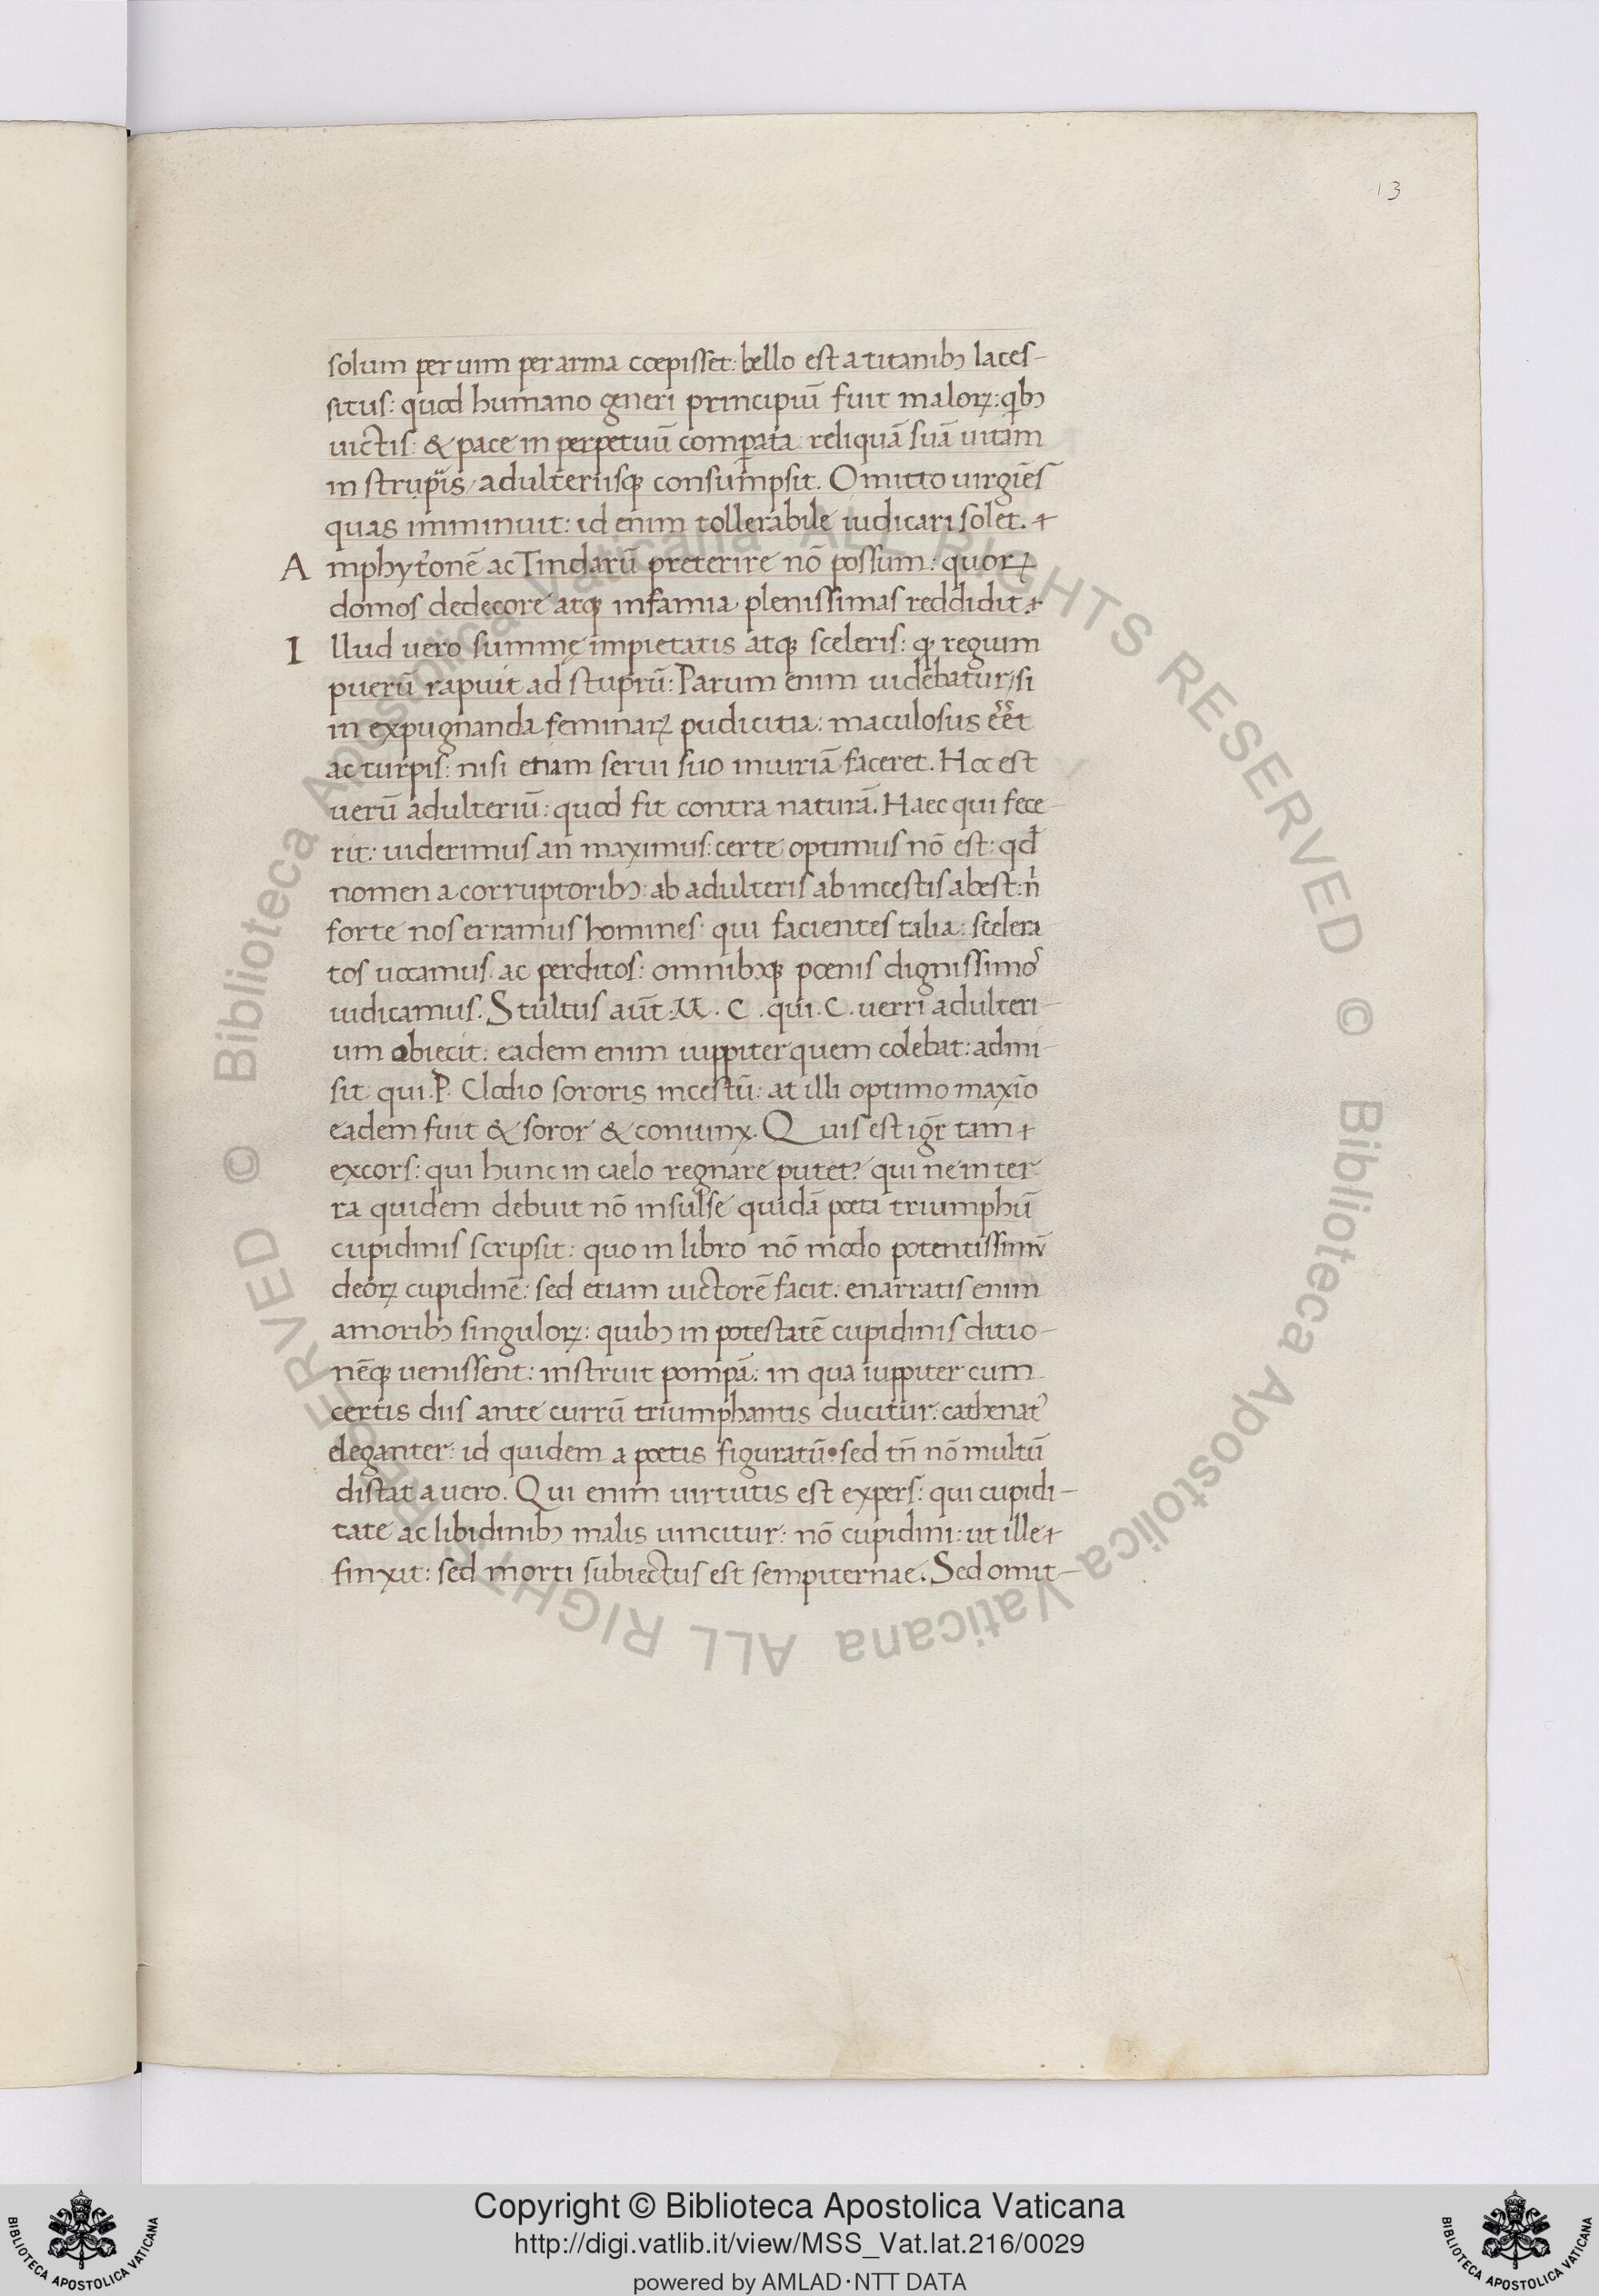 13
solum per uim per arma cœpisset: bello est a titanibꝫ laces-
situs: quod humano generi principiū fuit maloꝝ: qͥbꝫ
uictis: & pace in perpetuū comꝑata: reliquā suā uitam
in strupiis, adulteriisqꝫ consumpsit. Omitto uirgiēs
quas imminuit: id enim tollerabile iudicari solet.
Amphytͥonē ac Tindarū preterire nō possum: quoꝝ
domos dedecore atqꝫ infamia plenissimas reddidit.
Illud uero summę impietatis atqꝫ sceleris: qꝫ regium
puerū rapuit ad stuprū: Parum enim uidebatur, si
in expugnanda feminaꝝ pudicitia: maculosus eēt
ac turpis: nisi etiam serui suo iniuriā faceret. Hoc est
uerū adulteriū: quod fit contra naturā. Haec qui fece-
rit: uiderimus an maximus: certe optimus nō est: qđ
nomen a corruptoribꝫ: ab adulteris ab incestis abest: nͥ
forte nos erramus homines: qui facientes talia: scelera
tos uocamus. ac perditos: omnibꝫqꝫ pœnis dignissimoˢ
iudicamus. Stultus aūt. M. C. qui. C. uerri adulteri-
um obiecit: eadem enim iuppiter quem colebat: admi-
sit qui. P. Clodio sororis incestū: at illi optimo maxīo
eadem fuit & soror & coniunx. Quis est igr̄ tam
excors: qui hunc in caelo regnare putet? qui ne in ter-
ra quidem debuit nō insulse quidā pœta triumphū
cupidinis scripsit: quo in libro nō modo potentissimū
deoꝝ cupidinē: sed etiam uictorē facit: enarratis enim
amoribꝫ singuloꝝ: quibꝫ in potestatē cupidinis ditio-
nēqꝫ uenissent: instruit pompā: in qua iuppiter cum
certis diis ante currū triumphantis ducitur: cathenatꝰ
eleganter: id quidem a pœtis figuratū• sed tn̄ nō multū
distat a uero. Qui enim uirtutis est expers: qui cupidi-
tate ac libidinibꝫ malis uincitur: nō cupidini: ut ille
finxit: sed morti subiectus est sempiternae. Sed omit-
Copyright © Biblioteca Apostolica Vaticana
http://digi.vatlib.it/view/MSS_Vat.lat.216/0029
powered by AMLAD·NTT DATA
BIBLIOTECA APOSTOLICA VATICANA
BIBLIOTECA APOSTOLICA VATICANA
© Biblioteca Apostolica Vaticana ALL RIGHTS RESERVED
© Biblioteca Apostolica Vaticana ALL RIGHTS RESERVED